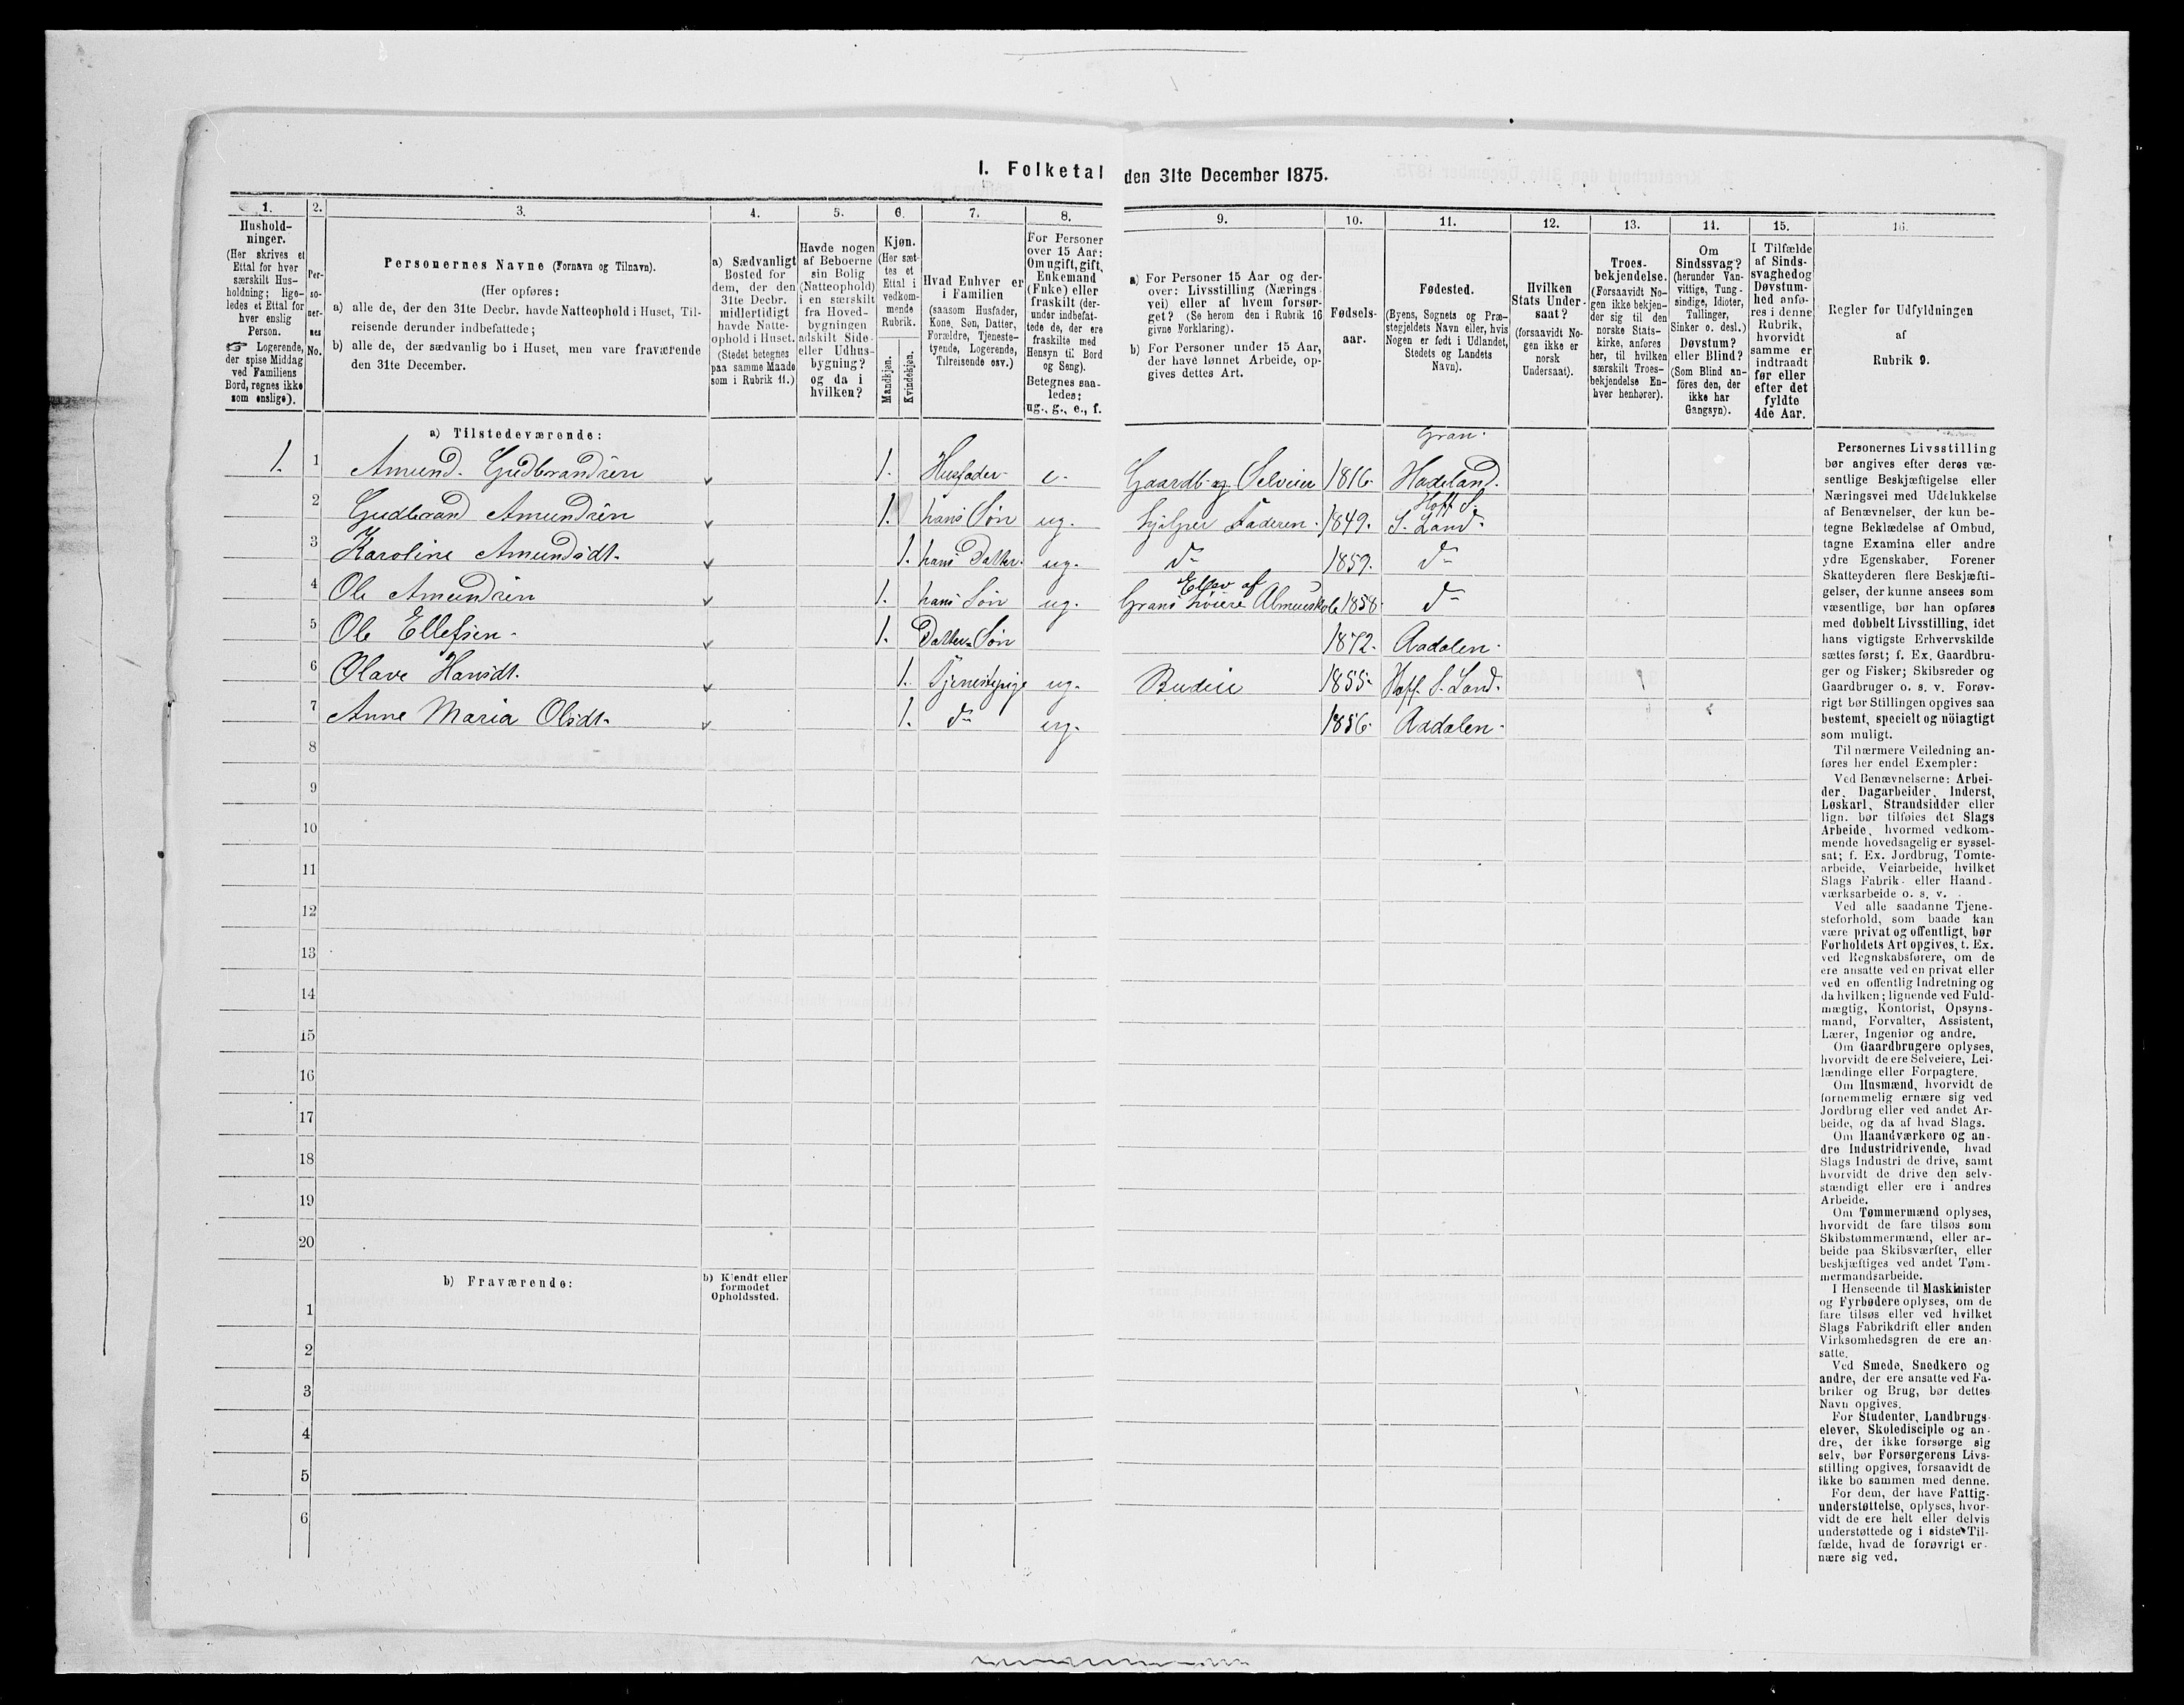 I. Folketal den 31te December 1875.
1. 2. 3. 4. 5. 6. 7. 8. 9. 10. 11. 12. 13. 14. 15. 16.
Hushold-
ninger.
(Her skrives et
Ettal for hver
særskilt Hus-
holdning; lige-
ledes et Ettal for
hver enslig
Person.
☞ Logerende,
der spise Middag
ved Familiens
Bord, regnes ikke
som enslige).
Per-
so-
ner-
nes
No.
Personernes Navne (Fornavn og Tilnavn).
(Her opføres:
a) alle de, der den 31te Decbr. havde Natteophold i Huset, Til-
reisende derunder indbefattede;
b) alle de, der sædvanlig bo i Huset, men vare fraværende
den 31te December.
a) Sædvanligt
Bosted for
dem, der den
31te Decbr.
midlertidigt
havde Natte-
ophold i Huset.
(Stedet betegnes
paa samme Maade
som i Rubrik 11.)
Havde nogen
af Beboerne
sin Bolig
(Natteophold)
i en særskilt
fra Hoved-
bygningen
adskilt Side-
eller Udhus-
bygning?
og da i
hvilken?
Kjøn.
(Her sæt-
tes et
Ettal i
vedkom-
mende
Rubrik.
Mandkjøn.
Kvindekjøn.
Hvad Enhver er
i Familien
(saasom Husfader,
Kone, Søn, Datter,
Forældre, Tjeneste-
tyende, Logerende,
Tilreisende osv.)
For Personer
over 15 Aar:
Om ugift, gift,
Enkemand
(Enke) eller
fraskilt (der-
under indbefat-
tede de, der ere
fraskilte med
Hensyn til Bord
og Seng).
Betegnes saa-
ledes:
ug., g., e., f.
a) For Personer 15 Aar og der-
over: Livsstilling (Nærings-
vei) eller af hvem forsør-
get? (Se herom den i Rubrik 16
givne Forklaring).
b) For Personer under 15 Aar,
der have lønnet Arbeide, op-
gives dettes Art.
Fødsels-
aar.
Fødested.
(Byens, Sognets og Præ-
stegjeldets Navn eller, hvis
Nogen er født i Udlandet,
Stedets og Landets
Navn).
Hvilken
Stats Under-
saat?
(forsaavidt No-
gen ikke er
norsk
Undersaat).
Troes-
bekjendelse.
(Forsaavidt No-
gen ikke bekjen-
der sig til den
norske Stats-
kirke, anføres
her, til hvilken
særskilt Troes-
bekjendelse En-
hver henhører).
Om
Sindssvag?
(herunder Van-
vittige, Tung-
sindige, Idioter,
Tullinger,
Sinker o. desl.)
Døvstum?
eller Blind?
(Som Blind an-
føres den, der
ikke har
Gangsyn).
I Tilfælde
af Sinds-
svaghed og
Døvstum-
hed anfø-
res i denne
Rubrik,
hvorvidt
samme er
indtraadt
før eller
efter det
fyldte
4de Aar.
Regler for Udfyldningen
af
Rubrik 9.
a) Tilstedeværende:
1. 1 Amund Gudbrandsen 1. Husfader e. Gaardb. og Selveier 1816. Gran. Hadeland.
2 Gudbrand Amundsen 1. hans Søn ug. hjelper Faderen. 1849. Hoff S. S. Land.
3 Karoline Amundsdt. 1. hans Datter. ug. do 1859. do
4 Ole Amundsen 1. hans Søn ug. Elev af Grans høiere Almueskole 1858. do
5 Ole Ellefsen. 1. Datter Søn 1872. Aadalen.
6 Olave Hansdt. 1. Tjenestepige ug. Budeie 1855. Hoff. S. Land.
7 Anne Maria Olsdt. 1. do ug. 1856. Aadalen.
8
9
10
11
12
13
14
15
16
17
18
19
20
b) Fraværende:
b) Kjendt eller
formodet
Opholdssted.
1
2
3
4
5
6
Personernes Livsstilling
bør angives efter deres væ-
sentlige Beskjæftigelse eller
Næringsvei med Udelukkelse
af Benævnelser, der kun be-
tegne Beklædelse af Ombud,
tagne Examina eller andre
ydre Egenskaber. Forener
Skatteyderen flere Beskjæfti-
gelser, der kunne ansees som
væsentlige, bør han opføres
med dobbelt Livsstilling, idet
hans vigtigste Erhvervskilde
sættes først; f. Ex. Gaardbru-
ger og Fisker; Skibsreder og
Gaardbruger o. s. v. Forøv-
rigt bør Stillingen opgives saa
bestemt, specielt og nöiagtigt
som muligt.
Til nærmere Veiledning an-
føres her endel Exempler:
Ved Benævnelserne: Arbei-
der, Dagarbeider, Inderst,
Løskarl, Strandsidder eller
lign. bør tilføies det Slags
Arbeide, hvormed vedkom-
mende hovedsagelig er syssel-
sat; f. Ex. Jordbrug, Tomte-
arbeide, Veiarbeide, hvilket
Slags Fabrik- eller Haand-
værksarbeide o. s. v.
Ved alle saadanne Tjene-
steforhold, som baade kan
være privat og offentligt, bør
Forholdets Art opgives, t. Ex.
ved Regnskabsførere, om de
ere ansatte ved en privat eller
ved en offentlig Indretning og
da hvilken; lignende ved Fuld-
mægtig, Kontorist, Opsyns-
mand, Forvalter, Assistent,
Lærer, Ingeniør og andre.
Om Gaardbrugere oplyses,
hvorvidt de ere Selveiere, Lei-
lændinge eller Forpagtere.
Om Husmænd, hvorvidt de
fornemmelig ernære sig ved
Jordbrug eller ved andet Ar-
beide, og da af hvad Slags.
Om Haandværkere og an-
dre Industridrivende, hvad
Slags Industri de drive, samt
hvorvidt de drive den selv-
stændigt eller ere i andres
Arbeide.
Om Tømmermænd oplyses,
hvorvidt de fare tilsøs som
Skibstømmermænd, eller ar-
beide paa Skibsværfter, eller
beskjæftiges ved andet Tøm-
mermandsarbeide.
I Henseende til Maskinister
og Fyrbødere oplyses, om de
fare tilsøs eller ved hvilket
Slags Fabrikdrift eller anden
Virksomhedsgren de ere an-
satte.
Ved Smede, Snedkere og
andre, der ere ansatte ved Fa-
briker og Brug, bør dettes
Navn opgives.
For Studenter, Landbrugs-
elever, Skoledisciple og an-
dre, der ikke forsørge sig
selv, bør Forsørgerens Livs-
stilling opgives, forsaavidt de
ikke bo sammen med denne.
For dem, der have Fattig-
understøttelse, oplyses, hvor-
vidt de ere helt eller delvis
understøttede og i sidste Til-
fælde, hvad de forøvrigt er-
nære sig ved.